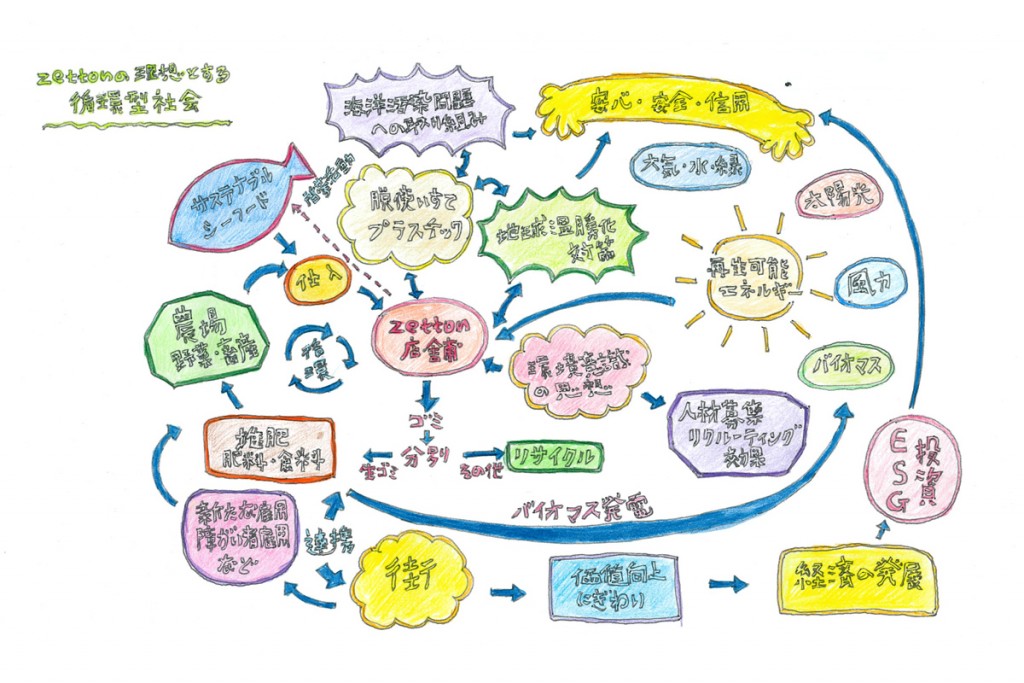 zettonの理想とする
循環型社会
海洋汚染問題
への取り組み
安心・安全・信用
大気・水・緑
太陽光
サステナブル
シーフード
脱使いすて
プラスチック
地球温暖化
対策
再生可能
エネルギー
風力
仕入
農場
野菜・畜産
循環
zetton
店舗
環境意識
の思想
バイオマス
人材募集
リクルーティング
効果
ゴミ
堆肥
肥料・飼料
生ゴミ
分別
その他
リサイクル
ESG
投資
バイオマス発電
新たな雇用
障がい者雇用
など
連携
街
価値向上
にぎわい
経済の発展